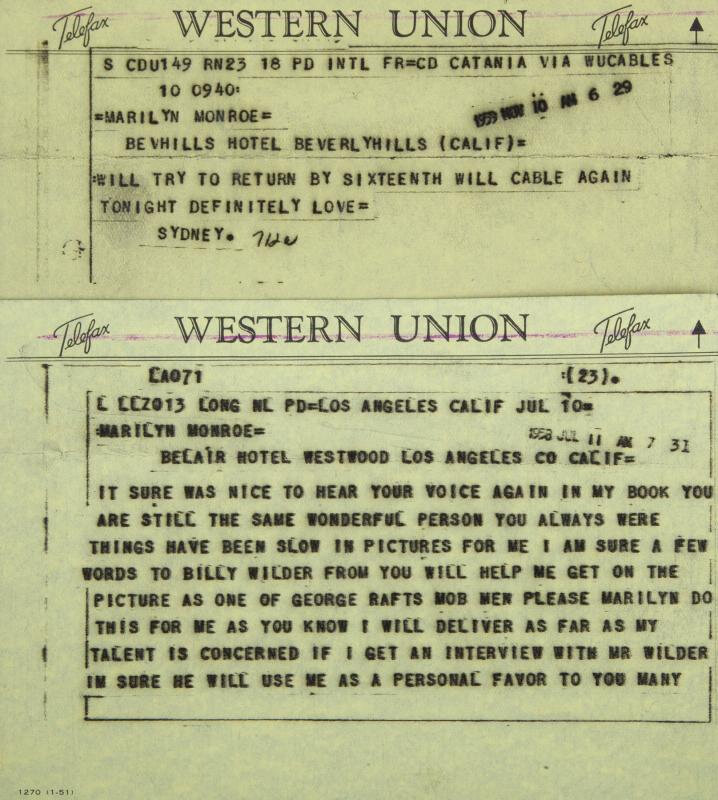 Telefax WESTERN UNION Telefax
S CDU149 RN23 18 PD INTL FR=CD CATANIA VIA WUCABLES
10 0940:
=MARILYN MONROE= 1959 NOV 10 AM 6 29
BEVHILLS HOTEL BEVERLYHILLS (CALIF)=
:WILL TRY TO RETURN BY SIXTEENTH WILL CABLE AGAIN
TONIGHT DEFINITELY LOVE=
SYDNEY.
Telefax WESTERN UNION Telefax
LA071 :(23).
L LLZ013 LONG NL PD=LOS ANGELES CALIF JUL 10=
:MARILYN MONROE= 1958 JUL 11 AM 7 31
BELAIR HOTEL WESTWOOD LOS ANGELES CO CALIF=
IT SURE WAS NICE TO HEAR YOUR VOICE AGAIN IN MY BOOK YOU
ARE STILL THE SAME WONDERFUL PERSON YOU ALWAYS WERE
THINGS HAVE BEEN SLOW IN PICTURES FOR ME I AM SURE A FEW
WORDS TO BILLY WILDER FROM YOU WILL HELP ME GET ON THE
PICTURE AS ONE OF GEORGE RAFTS MOB MEN PLEASE MARILYN DO
THIS FOR ME AS YOU KNOW I WILL DELIVER AS FAR AS MY
TALENT IS CONCERNED IF I GET AN INTERVIEW WITH MR WILDER
IM SURE HE WILL USE ME AS A PERSONAL FAVOR TO YOU MANY
1270 (1-51)